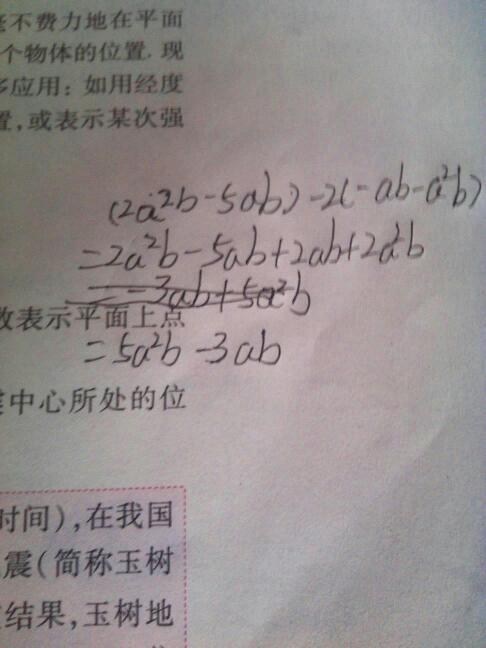 毫不费力地在平面
个物体的位置. 现
多应用: 如用经度
置, 或表示某次强
(2a²b-5ab)-2(-ab-a²b)
=2a²b-5ab+2ab+2a²b
=-3ab+5a²b
数表示平面上点
=5a²b-3ab
中心所处的位
时间), 在我国
震(简称玉树
结果, 玉树地